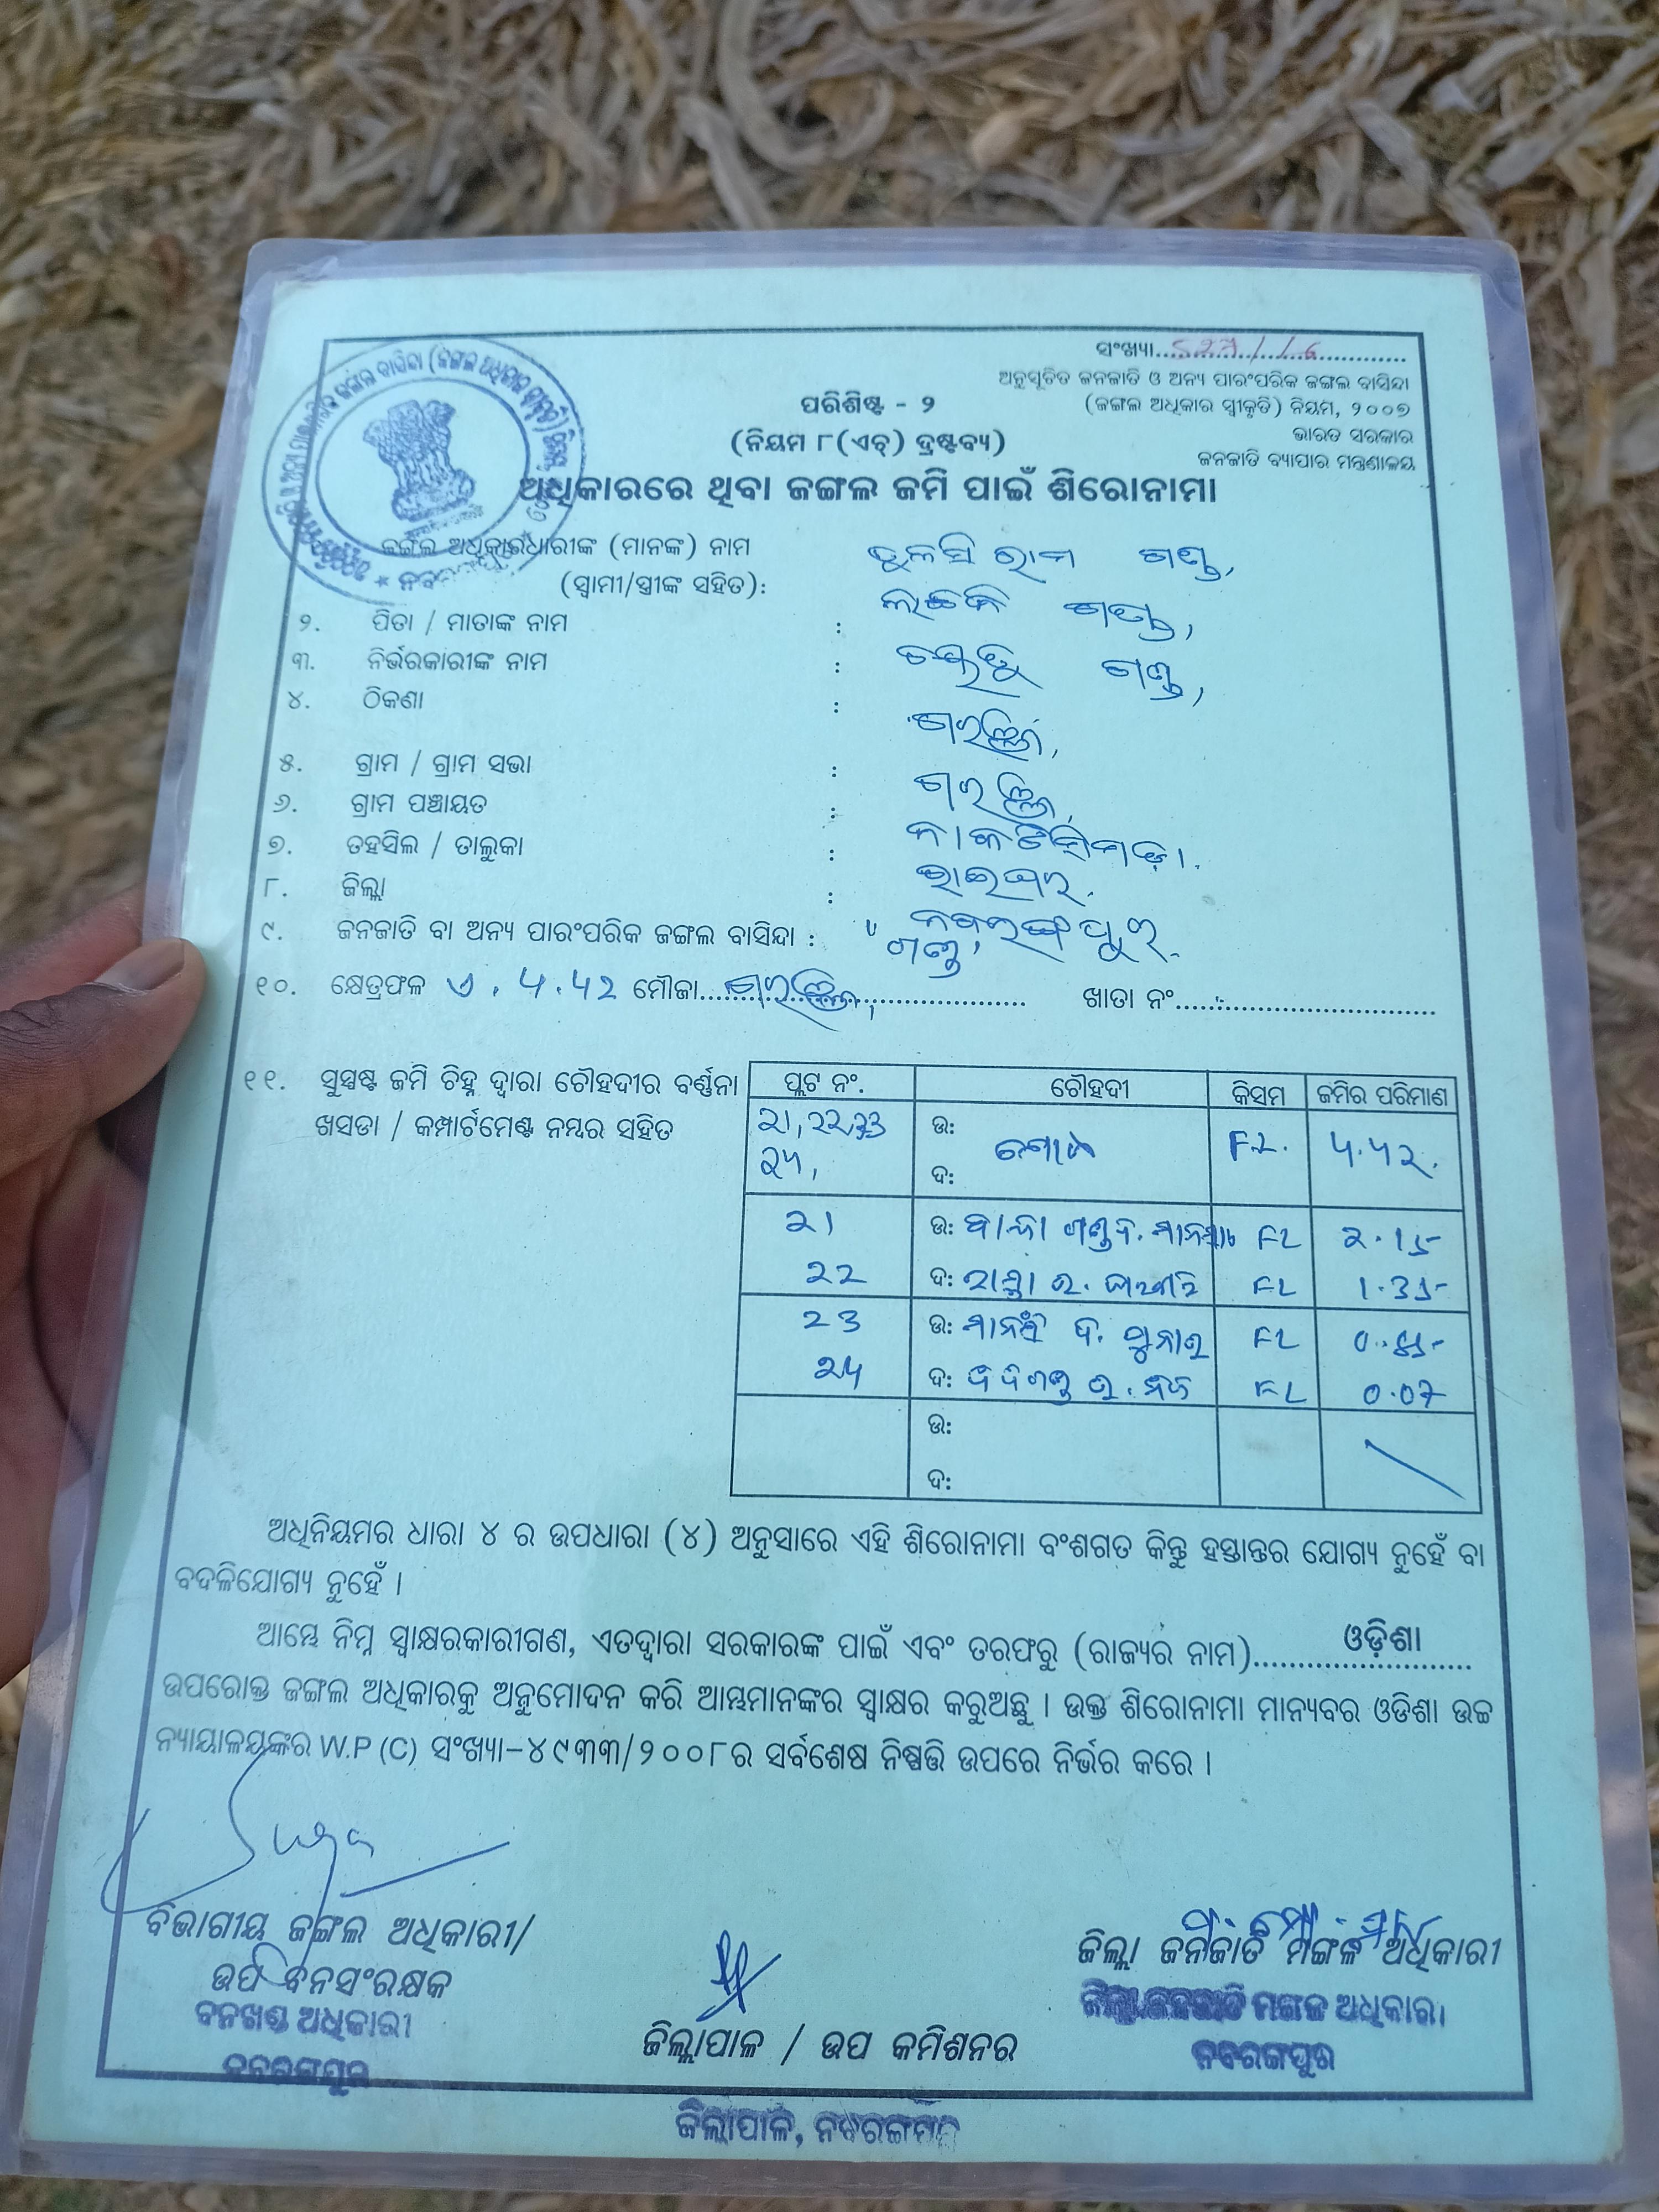 ସଂଖ୍ୟା
ଅନୁସୂଚିତ ଜନଜାତି ଓ ଅନ୍ୟ ପାରଂପରିକ ଜଙ୍ଗଲ ବାସିନ୍ଦା
(ଜଙ୍ଗଲ ଅଧିକାର ସ୍ୱୀକୃତି) ନିୟମ, ୨୦୦୭
ଭାରତ ସରକାର
ଜନଜାତି ବ୍ୟାପାର ମନ୍ତ୍ରଣାଳୟ
ପରିଶିଷ୍ଟ - ୨
(ନିୟମ ୮(ଏଚ୍) ଦ୍ରଷ୍ଟବ୍ୟ)
ଅଧିକାରରେ ଥିବା ଜଙ୍ଗଲ ଜମି ପାଇଁ ଶିରୋନାମା
ଜଙ୍ଗଲ ଅଧିକାରଧାରୀଙ୍କ (ମାନଙ୍କ) ନାମ ତୁଳସି ରାମ ଗଣ୍ଡ,
(ସ୍ୱାମୀ/ସ୍ତ୍ରୀଙ୍କ ସହିତ):
୨. ପିତା / ମାତାଙ୍କ ନାମ : ଗଣ୍ଡ,
୩. ନିର୍ଭରକାରୀଙ୍କ ନାମ : ଗଣ୍ଡ,
୪. ଠିକଣା :
୫. ଗ୍ରାମ / ଗ୍ରାମ ସଭା :
୬. ଗ୍ରାମ ପଞ୍ଚାୟତ :
୭. ତହସିଲ / ତାଲୁକା : ରାଇଘର.
୮. ଜିଲ୍ଲା : ନବରଙ୍ଗପୁର.
୯. ଜନଜାତି ବା ଅନ୍ୟ ପାରଂପରିକ ଜଙ୍ଗଲ ବାସିନ୍ଦା : ଗଣ୍ଡ,
୧୦. କ୍ଷେତ୍ରଫଳ ଏ. ୪.୪୨ ମୌଜା ଖାତା ନଂ
୧୧. ସୁସ୍ପଷ୍ଟ ଜମି ଚିହ୍ନ ଦ୍ୱାରା ଚୌହଦୀର ବର୍ଣ୍ଣନା
ଖସଡା / କମ୍ପାର୍ଟମେଣ୍ଟ ନମ୍ବର ସହିତ
ପ୍ଲଟ ନଂ. ଚୌହଦୀ କିସମ ଜମିର ପରିମାଣ
ଉ: FL. ୪.୪୨.
ଦ:
21 ଉ: FL 2.15
22 ଦ: FL 1.35
23 ଉ: FL
24 ଦ: FL 0.07
ଉ:
ଦ:
ଅଧିନିୟମର ଧାରା ୪ ର ଉପଧାରା (୪) ଅନୁସାରେ ଏହି ଶିରୋନାମା ବଂଶଗତ କିନ୍ତୁ ହସ୍ତାନ୍ତର ଯୋଗ୍ୟ ନୁହେଁ ବା
ବଦଳିଯୋଗ୍ୟ ନୁହେଁ ।
ଆମ୍ଭେ ନିମ୍ନ ସ୍ୱାକ୍ଷରକାରୀଗଣ, ଏତଦ୍ୱାରା ସରକାରଙ୍କ ପାଇଁ ଏବଂ ତରଫରୁ (ରାଜ୍ୟର ନାମ) ଓଡ଼ିଶା
ଉପରୋକ୍ତ ଜଙ୍ଗଲ ଅଧିକାରକୁ ଅନୁମୋଦନ କରି ଆମ୍ଭମାନଙ୍କର ସ୍ୱାକ୍ଷର କରୁଅଛୁ । ଉକ୍ତ ଶିରୋନାମା ମାନ୍ୟବର ଓଡିଶା ଉଚ୍ଚ
ନ୍ୟାୟାଳୟଙ୍କର W.P (C) ସଂଖ୍ୟା-୪୯୩୩/୨୦୦୮ର ସର୍ବଶେଷ ନିଷ୍ପତ୍ତି ଉପରେ ନିର୍ଭର କରେ ।
ବିଭାଗୀୟ ଜଙ୍ଗଲ ଅଧିକାରୀ/
ଉପ ବନସଂରକ୍ଷକ
ବନଖଣ୍ଡ ଅଧିକାରୀ
ନବରଙ୍ଗପୁର
ଜିଲ୍ଲାପାଳ / ଉପ କମିଶନର
ଜିଲ୍ଲାପାଳ, ନବରଙ୍ଗପୁର
ଜିଲ୍ଲା ଜନଜାତି ମଙ୍ଗଳ ଅଧିକାରୀ
ଜିଲ୍ଲା ଜନଜାତି ମଙ୍ଗଳ ଅଧିକାରୀ
ନବରଙ୍ଗପୁର